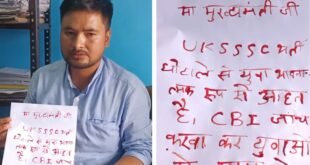 मा मुख्यमंत्री जी
UKSSSC भर्ती
घोटाले से युवा भावना-
त्मक रूप से आहत
है. CBI जांच
करवा कर युवाओ
मा मुख्यमंत्री जी
UKSSSC भर्ती
घोटाले से युवा भावना-
त्मक रूप से आहत
है, CBI जांच
करवा कर युवाओं